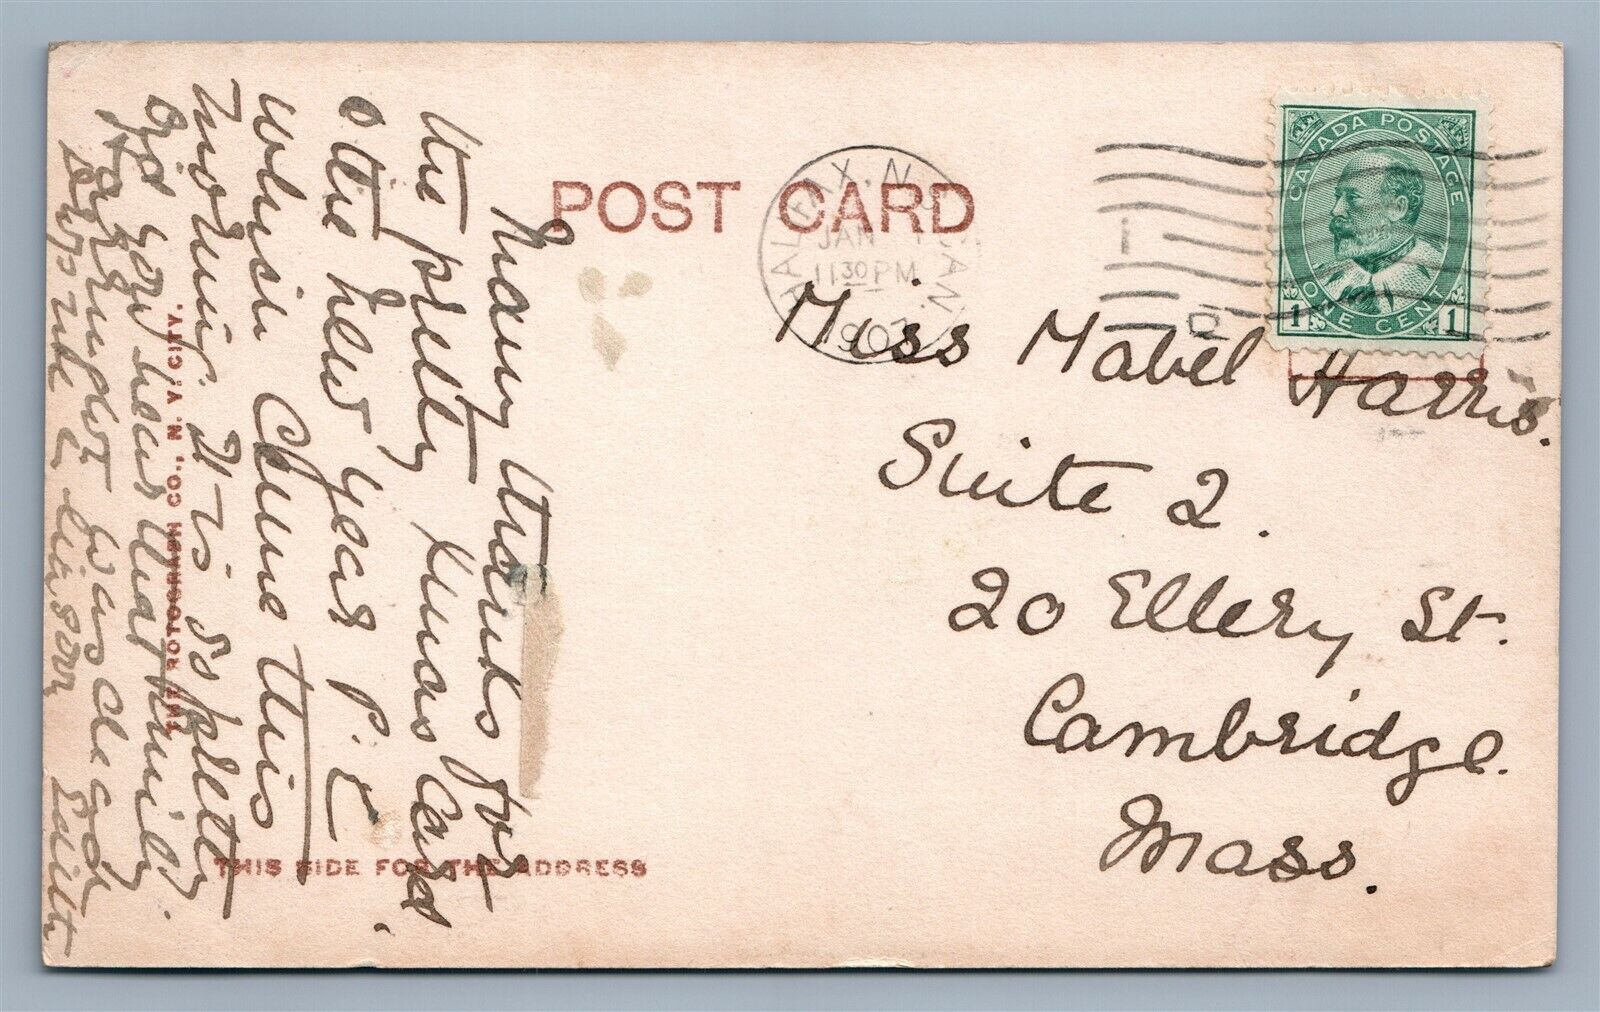 POST CARD
HALIFAX, N.S. CAN.
JAN
11 30 PM
1907
CANADA POSTAGE
1 ONE CENT 1
Miss Mabel Harris.
Suite 2.
20 Ellery St.
Cambridge.
Mass.
Many thanks for
the pretty Xmas Card,
& the New Year P. C
which Came this
morning. It is so pretty
Did you hear that Emily
was dead
THIS SIDE FOR THE ADDRESS
THE ROTOGRAPH CO., N. Y. CITY.